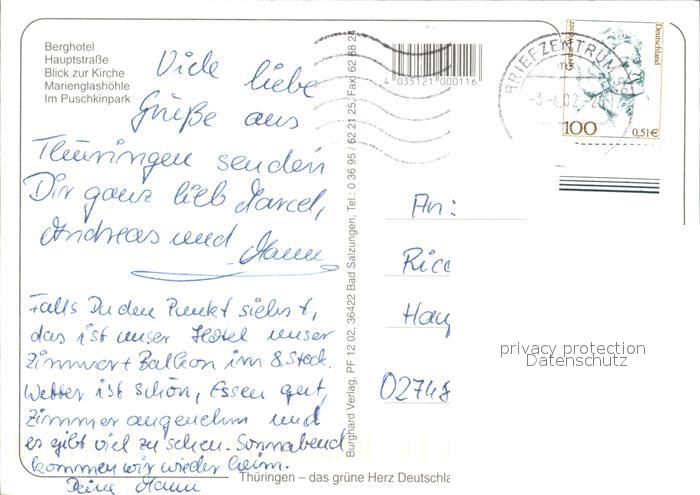 Berghotel
Hauptstraße
Blick zur Kirche
Marienglashöhle
Im Puschkinpark
Viele liebe
Grüße aus
Thüringen senden
Dir ganz lieb Marcel,
Andreas und Mann
Falls Du den Punkt siehst,
das ist unser Hotel unser
Zimmer + Balkon im 8 Stock.
Wetter ist schön, Essen gut,
Zimmer angenehm und
es gibt viel zu sehen. Sonnabend
kommen wir wieder heim.
Deine
Thüringen – das grüne Herz Deutschla
Burghard Verlag, PF 12 02, 36422 Bad Salzungen, Tel.: 0 36 95 / 62 21 25, Fax: 62 88 24
4 035121 000116
BRIEFZENTRUM
Deutschland
100
0,51€
An:
Ricc
Hau
02748
privacy protection
Datenschutz